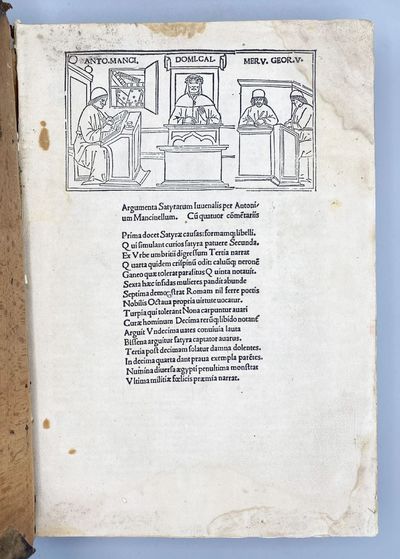 ANTO.MANCI,
DOMI.CAL
MERV. GEOR.V.
Argumenta Satyrarum Iuuenalis per Antoni-
um Mancinellum. Cū quatuor cōmētariis
Prima docet Satyræ causas: formamqȝ libelli.
Qui simulant curios satyra patuere Secunda.
Ex Vrbe umbritii digressum Tertia narrat
Quarta quidem crispinū odit: caluūqȝ neronē
Ganeo quæ tolerat parasitus Quinta notauit.
Sexta hæc infidas mulieres pandit abunde
Septima demōstrat Romam nil ferre poetis
Nobilis Octaua propria uirtute uocatur.
Turpia qui tolerant Nona carpuntur auari
Curæ hominum Decima rerūqȝ libido notant
Arguit Vndecima uates conuiuia lauta
Bissena arguitur satyra captator auarus.
Tertia post decimam solatur damna dolentes.
In decima quarta dant praua exempla parētes.
Numina diuersa ægypti penultima monstrat
Vltima militiæ fœlicis præmia narrat.